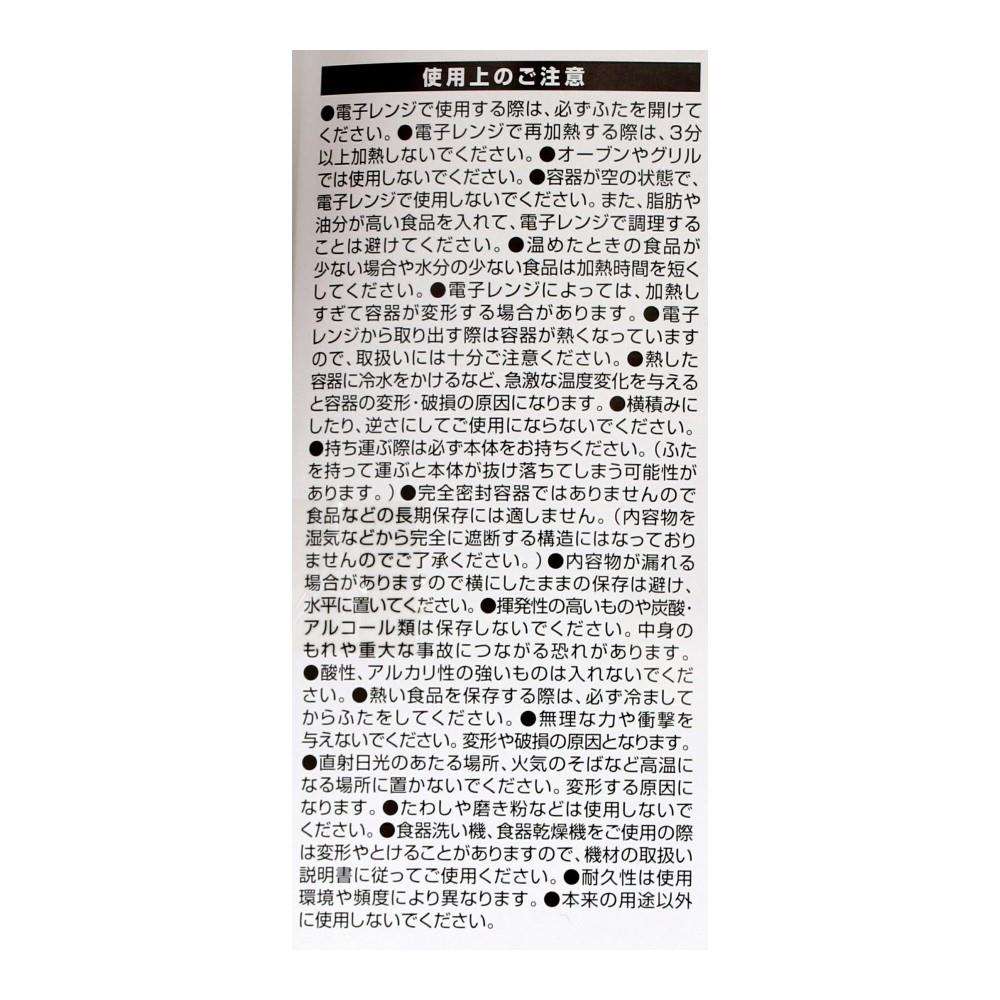 使用上のご注意
●電子レンジで使用する際は、必ずふたを開けて
ください。●電子レンジで再加熱する際は、3分
以上加熱しないでください。●オーブンやグリル
では使用しないでください。●容器が空の状態で、
電子レンジで使用しないでください。また、脂肪や
油分が高い食品を入れて、電子レンジで調理する
ことは避けてください。●温めたときの食品が
少ない場合や水分の少ない食品は加熱時間を短く
してください。●電子レンジによっては、加熱し
すぎて容器が変形する場合があります。●電子
レンジから取り出す際は容器が熱くなっています
ので、取扱いには十分ご注意ください。●熱した
容器に冷水をかけるなど、急激な温度変化を与える
と容器の変形・破損の原因になります。●横積みに
したり、逆さにしてご使用にならないでください。
●持ち運ぶ際は必ず本体をお持ちください。(ふた
を持って運ぶと本体が抜け落ちてしまう可能性が
あります。)●完全密封容器ではありませんので
食品などの長期保存には適しません。(内容物を
湿気などから完全に遮断する構造にはなっており
ませんのでご了承ください。)●内容物が漏れる
場合がありますので横にしたままの保存は避け、
水平に置いてください。●揮発性の高いものや炭酸・
アルコール類は保存しないでください。中身の
もれや重大な事故につながる恐れがあります。
●酸性、アルカリ性の強いものは入れないでくだ
さい。●熱い食品を保存する際は、必ず冷まして
からふたをしてください。●無理な力や衝撃を
与えないでください。変形や破損の原因となります。
●直射日光のあたる場所、火気のそばなど高温に
なる場所に置かないでください。変形する原因に
なります。●たわしや磨き粉などは使用しないで
ください。●食器洗い機、食器乾燥機をご使用の際
は変形やとけることがありますので、機材の取扱い
説明書に従ってご使用ください。●耐久性は使用
環境や頻度により異なります。●本来の用途以外
に使用しないでください。